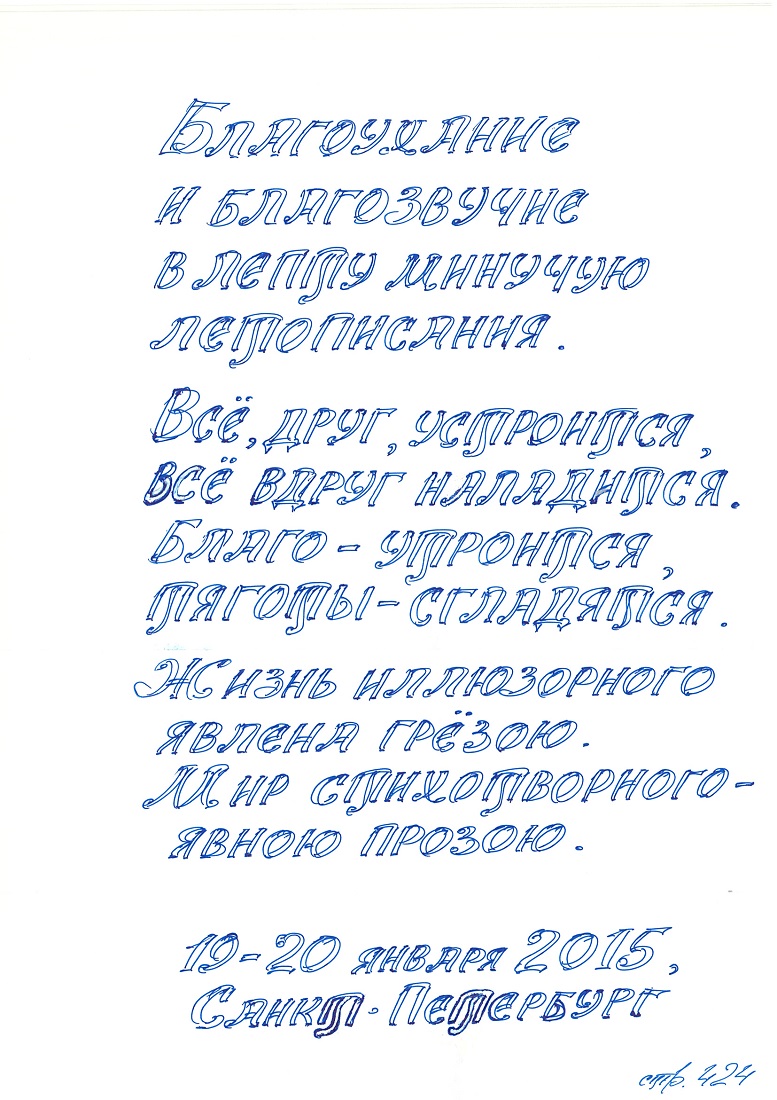 Благоухание
и благозвучие
в лепту минучую
летописания.
Всё, друг, устроится,
всё вдруг наладится.
Благо - утроится,
тяготы - сгладятся.
Жизнь иллюзорного
явлена грёзою.
Мир стихотворного -
явною прозою.
19-20 января 2015,
Санкт-Петербург
стр. 424